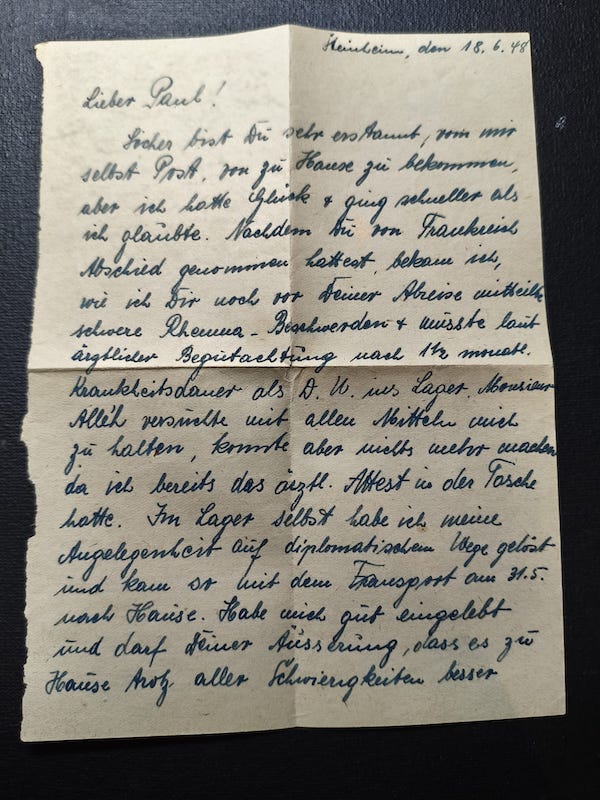 Steinheim, den 18.6.48
Lieber Paul!
Sicher bist Du sehr erstaunt, von mir
selbst Post, von zu Hause zu bekommen,
aber ich hatte Glück & ging schneller als
ich glaubte. Nachdem Du von Frankreich
Abschied genommen hattest, bekam ich,
wie ich Dir noch vor Deiner Abreise mitteilte
schwere Rheuma-Beschwerden & müsste laut
ärztlicher Begutachtung nach 1½ monatl.
Krankheitsdauer als D. U. ins Lager. Monsieur
Alleh versuchte mit allen Mitteln mich
zu halten, konnte aber nichts mehr machen
da ich bereits das ärztl. Attest in der Tasche
hatte. Im Lager selbst habe ich meine
Angelegenheit auf diplomatischem Wege gelöst
und kam so mit dem Transport am 31.5.
nach Hause. Habe mich gut eingelebt
und darf Deiner Äusserung, dass es zu
Hause trotz aller Schwierigkeiten besser